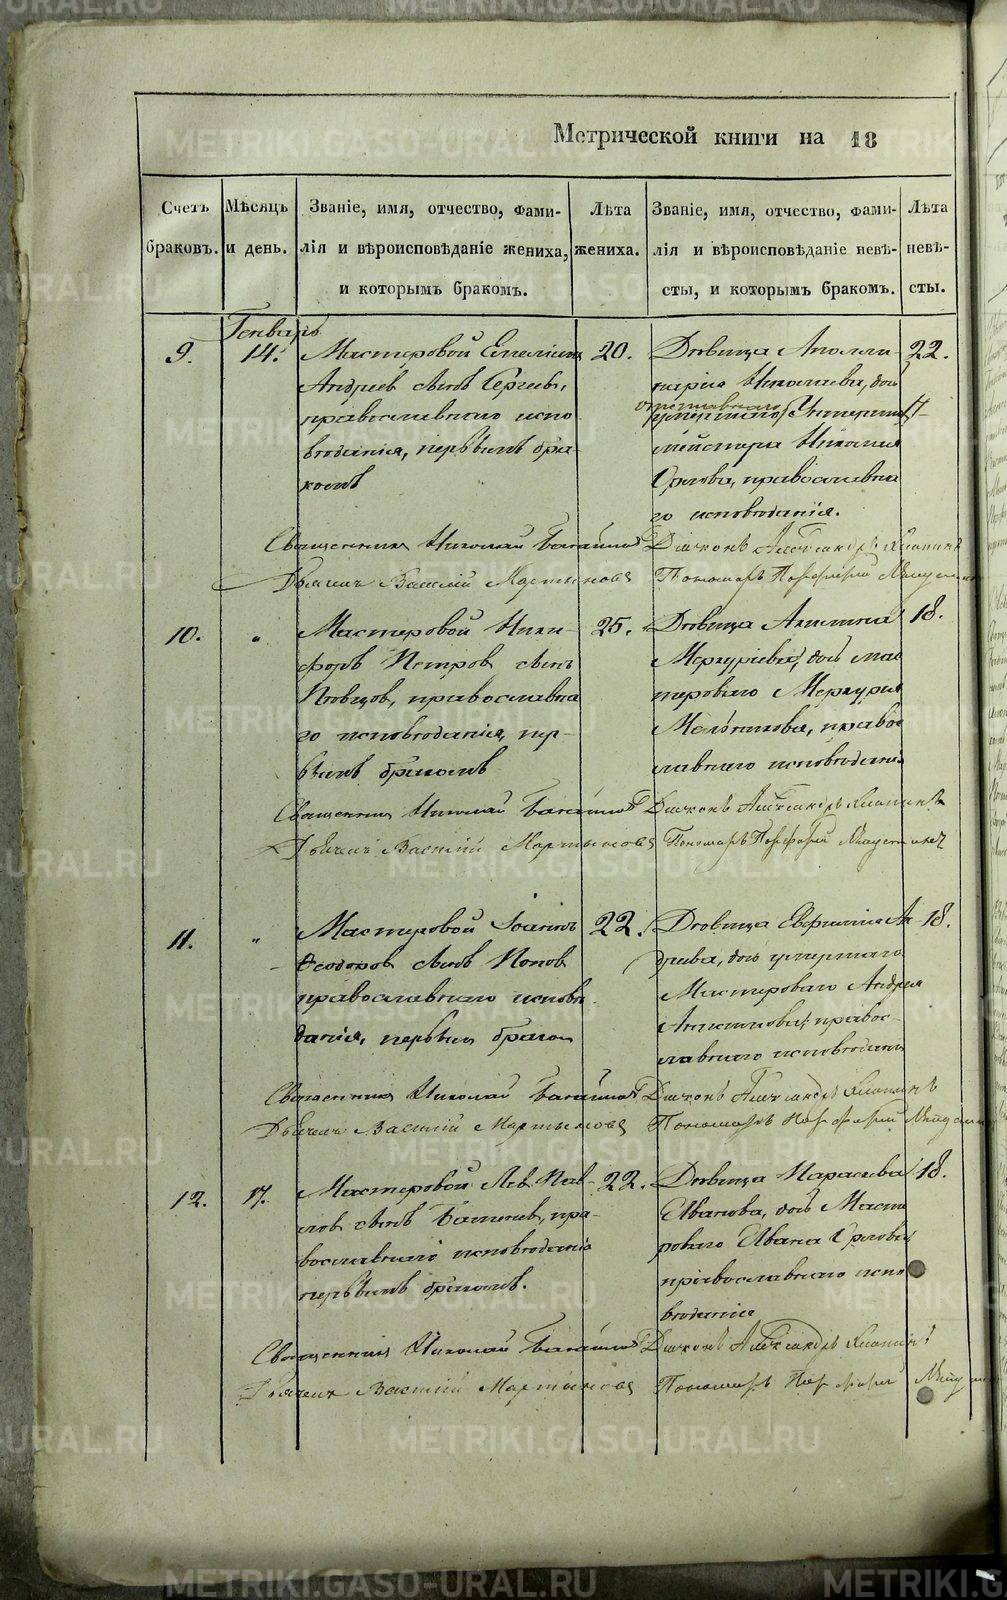 Метрической книги на 18
Счетъ браковъ.
Мѣсяцъ и день.
Званіе, имя, отчество, фами-
лія и вѣроисповѣданіе жениха,
и которымъ бракомъ.
Лѣта жениха.
Званіе, имя, отчество, фами-
лія и вѣроисповѣданіе невѣ-
сты, и которымъ бракомъ.
Лѣта невѣ-
сты.
Генварь
9.
14.
Мастеровой Емеліянъ
Андреевъ сынъ Сергеевъ,
православнаго испо
вѣданія, первымъ бра-
комъ
20.
Дѣвица Аполли-
нарія Николаева, дочь
отставнаго Унтеръ
мейстера Николая
Орлова, православна
го исповѣданія.
22.
Священникъ Николай Діаконъ Александръ
Дьячекъ Василій Мартыновъ Пономарь Порфирій
10.
"
Мастеровой Ники-
форъ Петровъ сынъ
Пѣвцовъ, православна
го исповѣданія, пер-
вымъ бракомъ
25.
Дѣвица Акилина
Меркурієва, дочь мас
тероваго Меркурія
Мельникова, правос
лавнаго исповѣданія
18.
Священникъ Николай Діаконъ Александръ
Дьячекъ Василій Мартыновъ Пономарь Порфирій
11.
"
Мастеровой Іоаннъ
Ѳеодоровъ сынъ Поповъ
православнаго исповѣ
данія, первымъ бракомъ
22.
Дѣвица Евфимія Ан
дреева, дочь умершаго
Мастероваго Андрея
правос-
лавнаго исповѣданія
18.
Священникъ Николай Діаконъ Александръ
Дьячекъ Василій Мартыновъ Пономарь Порфирій
12.
17.
Мастеровой Левъ Пав-
ловъ сынъ пра-
вославнаго исповѣданія
первымъ бракомъ.
22.
Дѣвица Парасковья
Иванова, дочь Масте
роваго Ивана Орлова
православнаго испо
вѣданія
18.
Священникъ Николай Діаконъ Александръ
Дьячекъ Василій Мартыновъ Пономарь Порфирій
METRIKI.GASO-URAL.RU